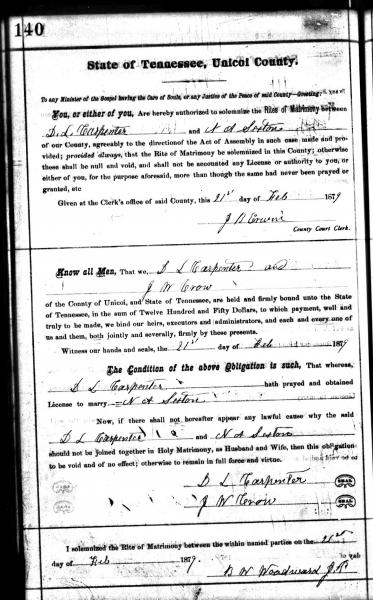 140
State of Tennessee, Unicoi County.
To any Minister of the Gospel having the Care of Souls, or any Justice of the Peace of said County—Greeting:
You, or either of you, Are hereby authorized to solemnize the Rites of Matrimony between
D. L. Carpenter and N A Sexton
of our County, agreeably to the direction of the Act of Assembly in such case made and pro-
vided; provided always, that the Rite of Matrimony be solemnized in this County; otherwise
these shall be null and void, and shall not be accounted any License or authority to you, or
either of you, for the purpose aforesaid, more than though the same had never been prayed or
granted, etc
Given at the Clerk's office of said County, this 21st day of Feb 1879
J. B. Erwin
County Court Clerk.
Know all Men, That we, D L Carpenter and
J W Crow
of the County of Unicoi, and State of Tennessee, are held and firmly bound unto the State
of Tennessee, in the sum of Twelve Hundred and Fifty Dollars, to which payment, well and
truly to be made, we bind our heirs, executors and administrators, and each and every one of
us and them, both jointly and severally, firmly by these presents.
Witness our hands and seals, the 21st day of Feb 1879
The Condition of the above Obligation is such, That whereas,
D L Carpenter hath prayed and obtained
License to marry N A Sexton
Now, if there shall not hereafter appear any lawful cause why the said
D L Carpenter and N A Sexton
should not be joined together in Holy Matrimony, as Husband and Wife, then this obligation
to be void and of no effect; otherwise to remain in full force and virtue.
D L Carpenter SEAL
J W Crow SEAL
I solemnized the Rite of Matrimony between the within named parties on the
day of Feb 1879.
B W Woodward J. P.